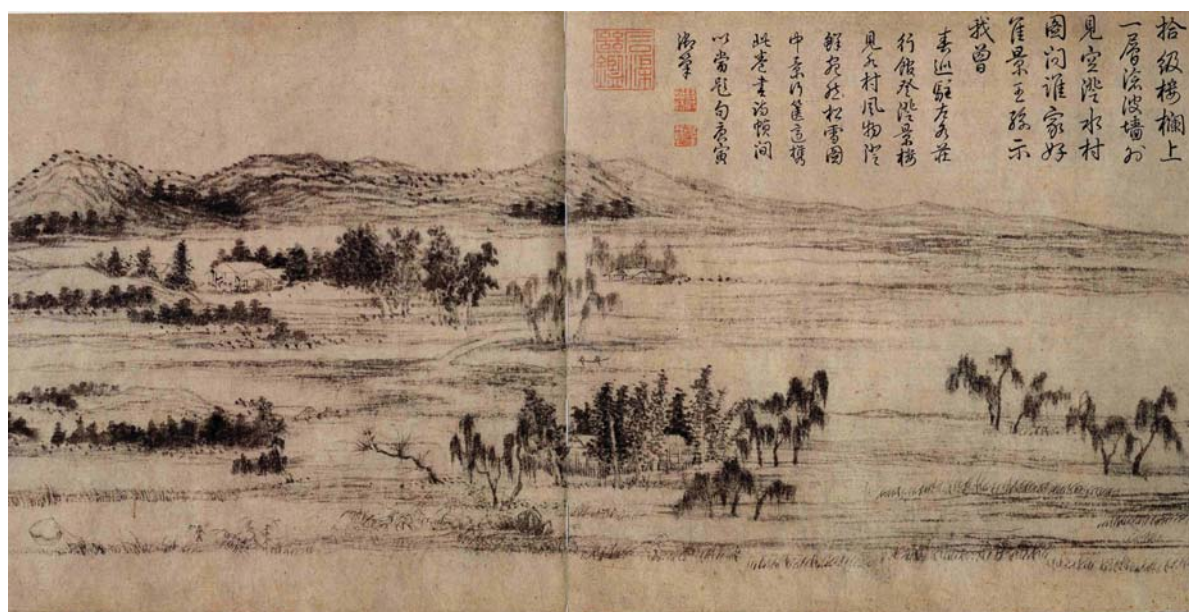 拾級樓欄上
一層滄波墻外
見空澄水村
圖問誰家好
佳景王孫示
我曾
春巡駐左各莊
行館登澄景樓
見水村風物澄
鮮宛然松雪圖
中景行篋適攜
此卷書詩幀間
以當題句庚寅
御筆